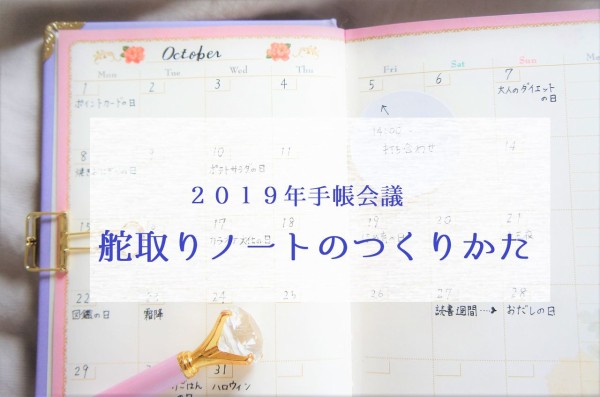 October
Mon Tue Wed Thu Fri Sat Sun
1 2 3 4 5 6 7
ポイントカードの日
大人のダイエット
の日
14:00
8 10 11 14
２０１９年手帳会議
舵取りノートのつくりかた
17 18 19 20 21
22 24 25 26 27 28
図鑑の日 霜降 読書週間…→ おだしの日
29 31
ごはん ハロウィン